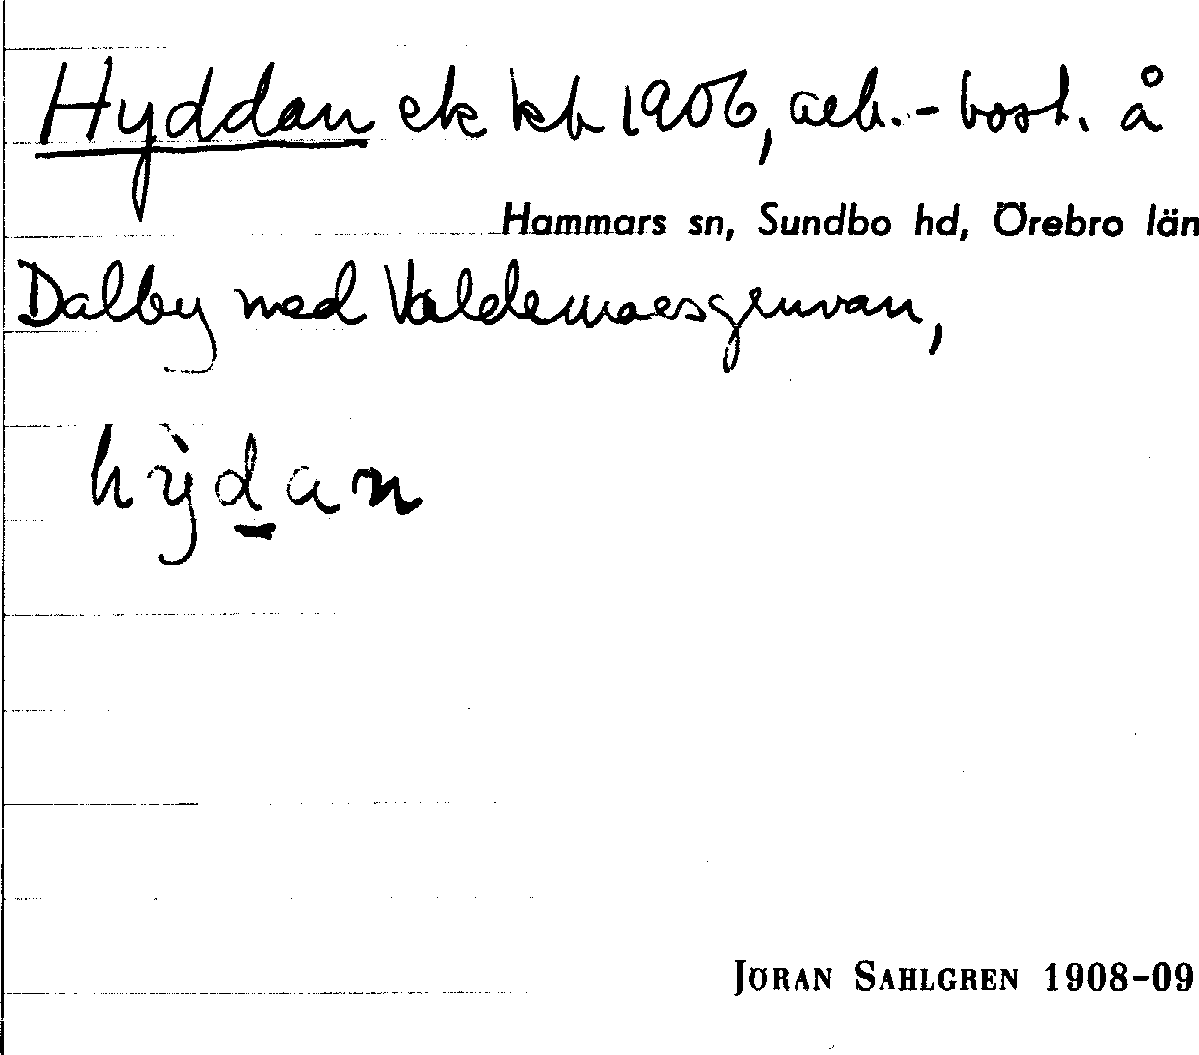 Hyddan ek kb 1906, arb.-bost. å
Hammars sn, Sundbo hd, Örebro län
Dalby med Valdemarsgruvan,
hẏ̀d̲an
JÖRAN SAHLGREN 1908-09